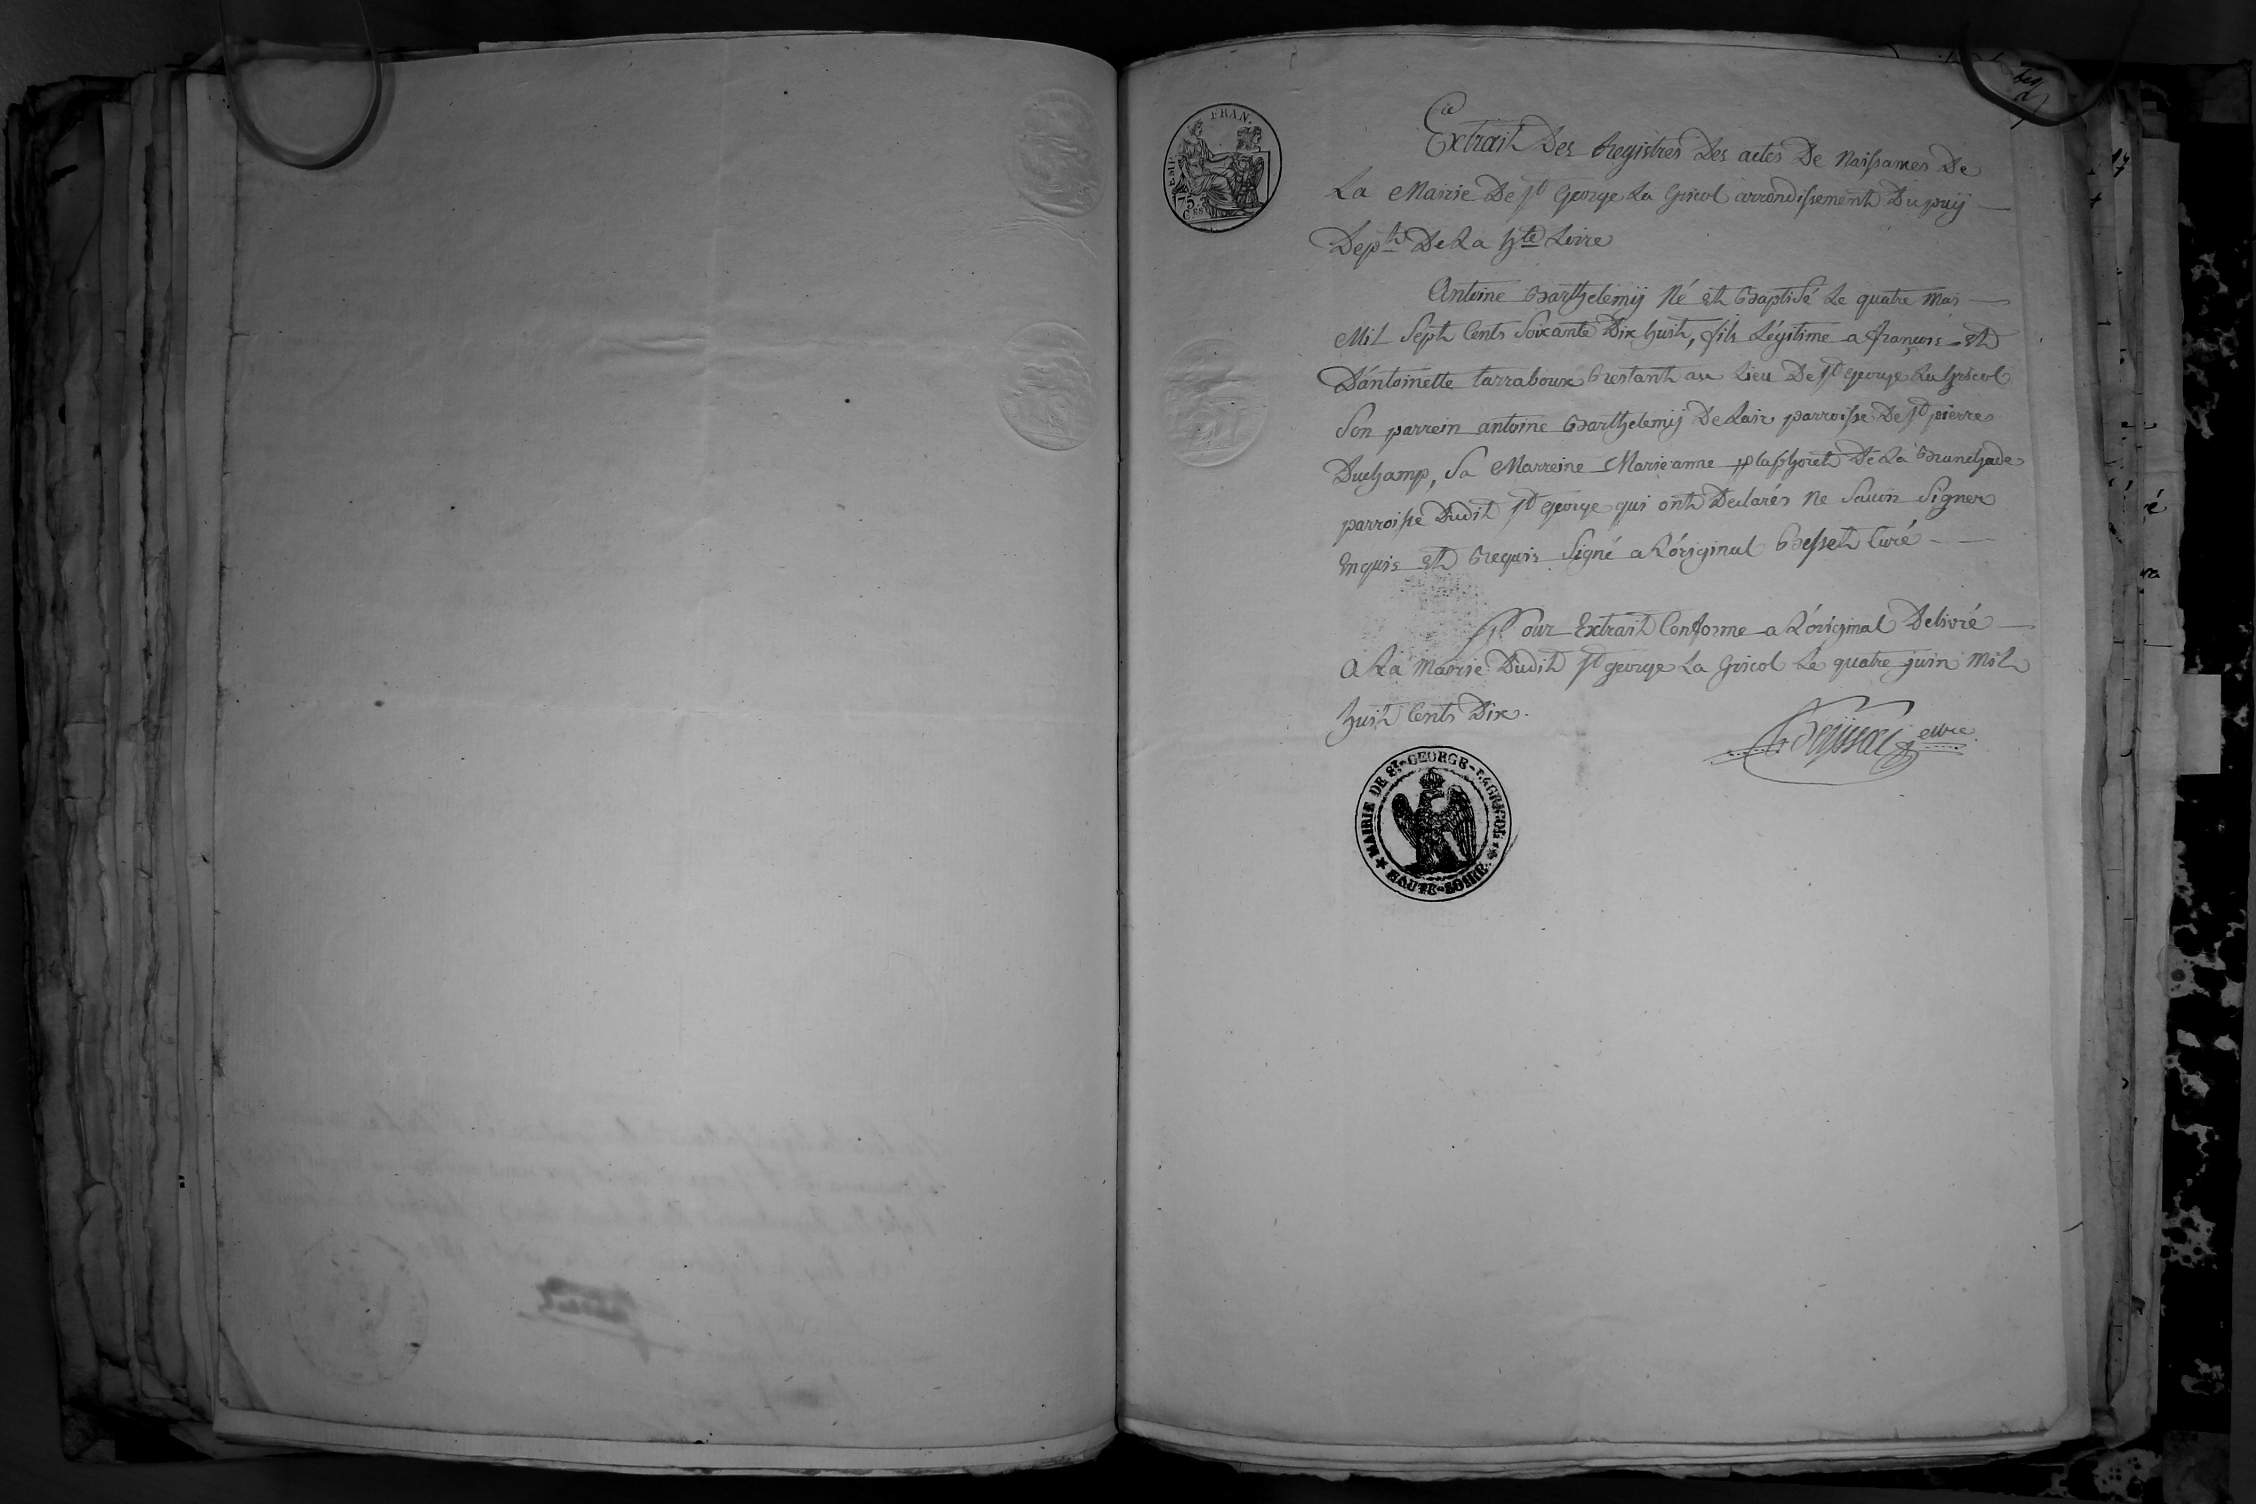 EMP. FRAN.
75
C.ES
Extrait Des Registres Des actes De Naissances De
La Mairie De St George La Gricol arrondissement Dupuÿ
Dept De La hte Loire
Antoine Barthelemÿ Né et Baptisé Le quatre mai
Mil Sept Cents Soixante Dix huit, fils Légitime a françois et
D'antoinette tarraboux Restant au Lieu De St George La Gricol
Son parrein antoine Barthelemÿ De Lair parroisse De St pierre
Duchamp, Sa Marreine Marieanne De La
parroisse Dudit St george qui ont Declarés Ne Savoir Signer
Enquis et Requis Signé a L'original Besset Curé
Pour Extrait Conforme a L'original Delivré
A La Mairie Dudit St george La Gricol Le quatre juin Mil
huit Cents Dix.
MAIRIE DE ST-GEORGE-LAGRICOL
HAUTE-LOIRE.